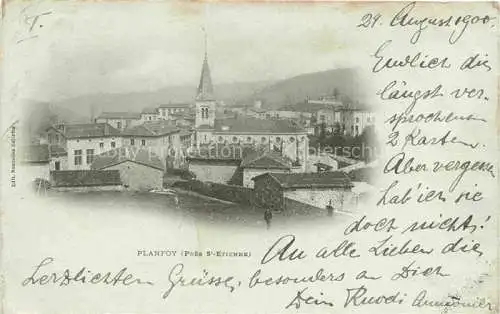 T.
29. August 1900.
Endlich die
längst ver-
sprochenen
2 Karten.
Aber vergessen
hab' ich sie
doch nicht!
PLANFOY (PRÈS St-ETIENNE)
An alle Lieben die
herzlichsten Grüsse, besonders an Dich
Dein Ruodi